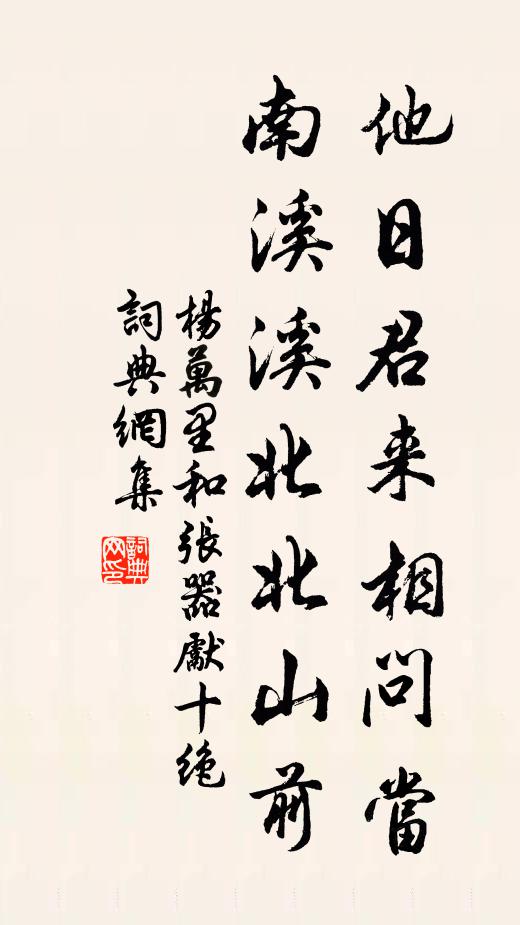 他日君来相問當
南溪溪北北山前
楊萬里和張器獻十绝
詞典網集
詞典網印